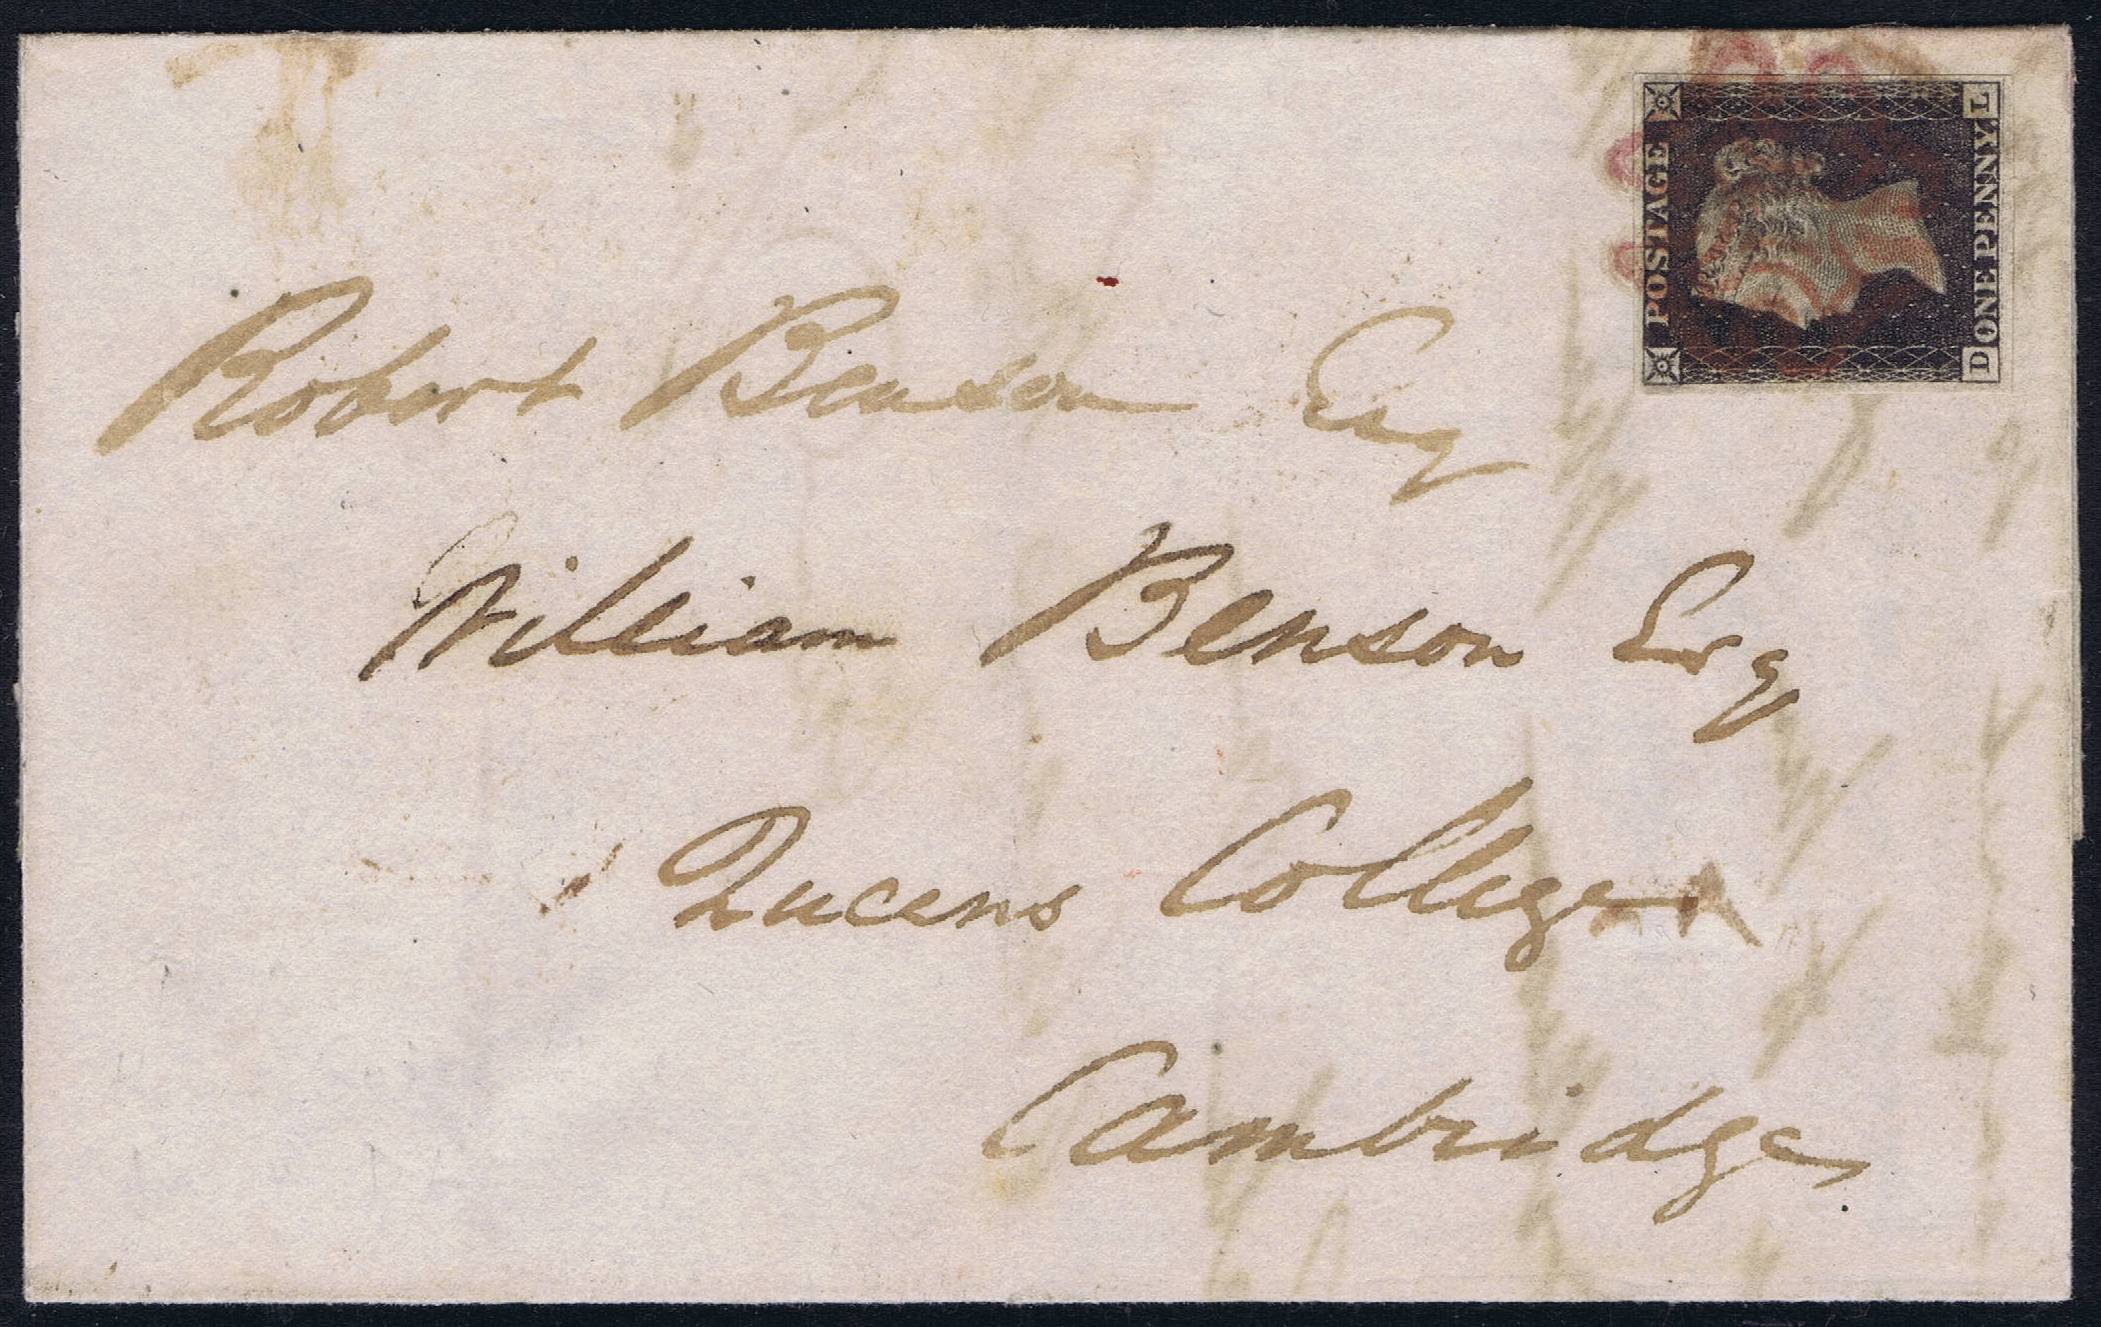 POSTAGE
D L
ONE PENNY.
Robert Benson Esq
William Benson Esq
Queens College
Cambridge,